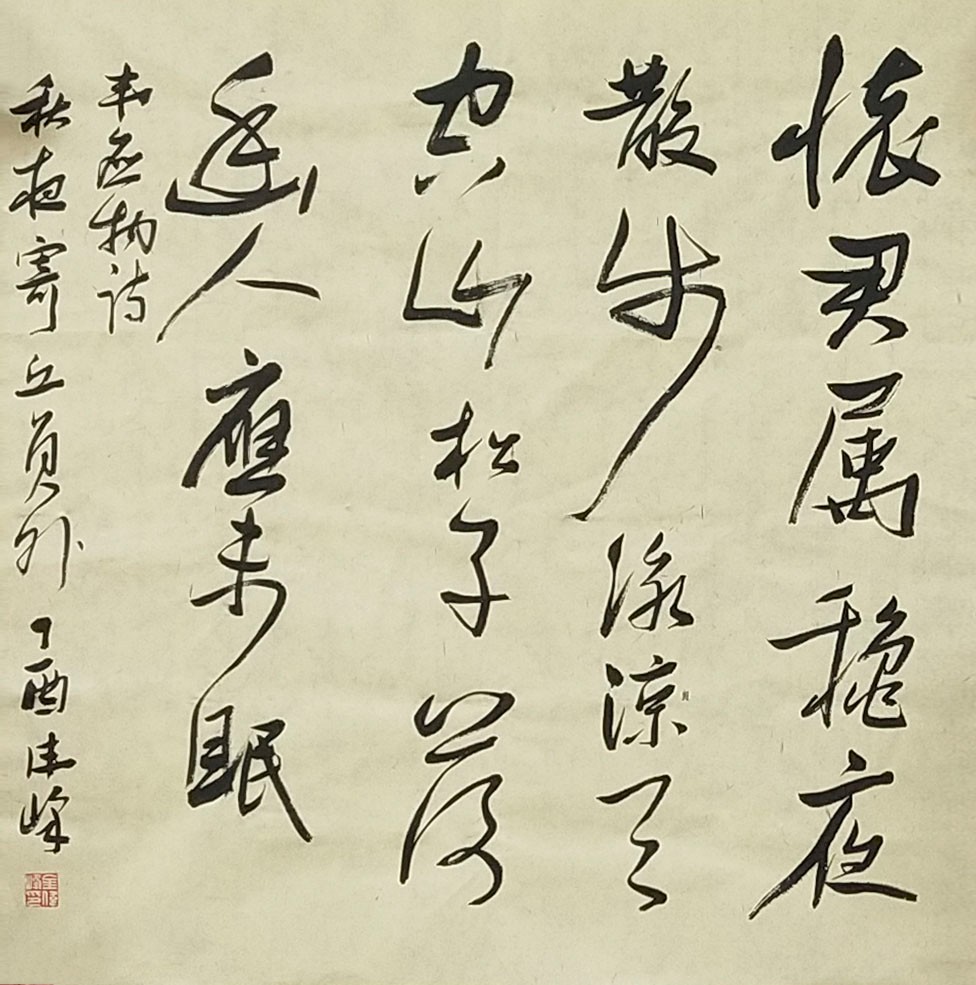 懷君属穐夜
散步詠涼天
空山松子落
幽人應未眠
韦应物诗
秋夜寄丘員外 丁酉 峰